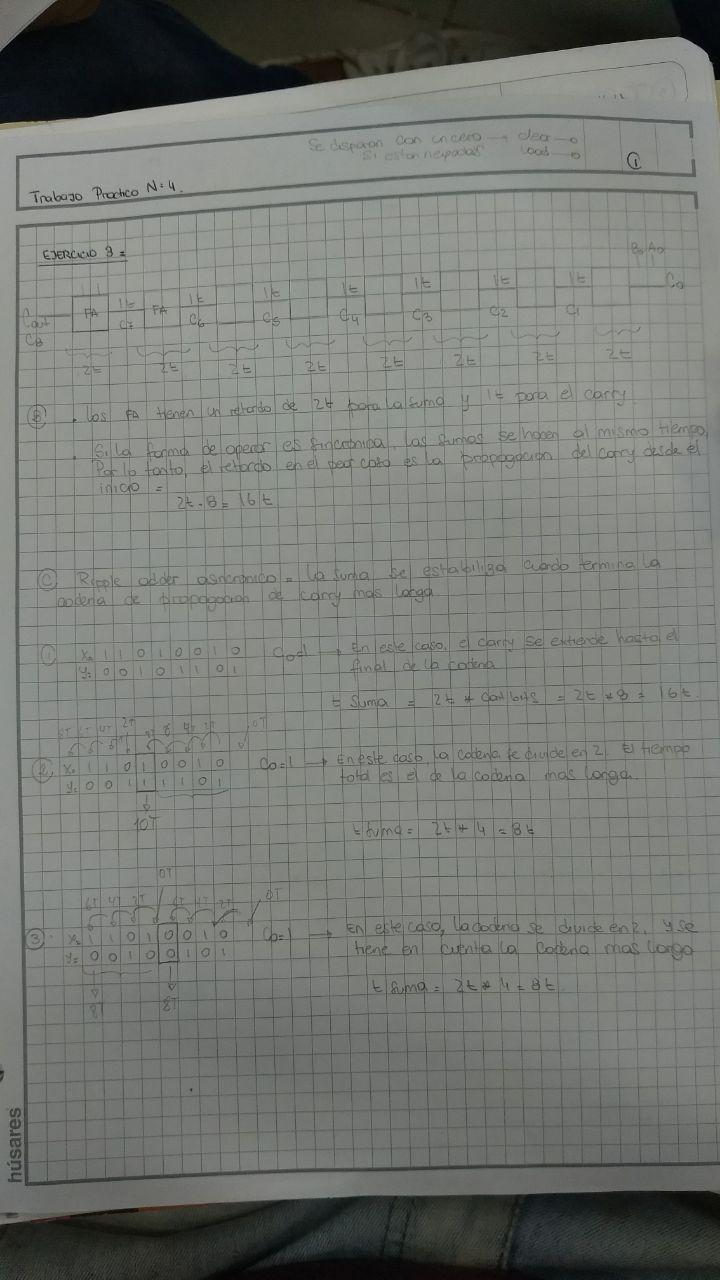 Se disparan con un cero → clear —o
Si estan negadas load —o
①
Trabajo Practico N=4.
EJERCICIO 9 =
B0 A0
1t 1t 1t 1t 1t 1t 1t
Cout FA FA C0
C8 C7 C6 C5 C4 C3 C2 C1
2t 2t 2t 2t 2t 2t 2t 2t
Ⓑ . los FA tienen un retardo de 2t para la suma y 1t para el carry.
. Si la forma de operar es sincronica, las sumas se hacen al mismo tiempo,
Por lo tanto, el retardo en el peor caso es la propagacion del carry desde el
inicio =
2t . 8 = 16t
Ⓒ Ripple adder asincronico = la suma se estabiliza cuando termina la
cadena de propagacion de carry mas larga
① X= 1 1 0 1 0 0 1 0 C0=1 → En este caso, el carry se extiende hasta el
Y= 0 0 1 0 1 1 0 1 final de la cadena
t suma = 2t * cant bits = 2t * 8 = 16t.
2T 0T
② X= 1 1 0 1 0 0 1 0 C0=1 → En este caso, la cadena se divide en 2. El tiempo
Y= 0 0 1 1 1 1 0 1 total es el de la cadena mas larga.
10T
t suma = 2t * 4 = 8t
0T
6T 4T 2T 6T 4T 2T 0T
③ X= 1 1 0 1 0 0 1 0 C0=1 → En este caso, la cadena se divide en 2, y se
Y= 0 0 1 0 0 1 0 1 tiene en cuenta la cadena mas larga
8T 8T
t suma = 2t * 4 = 8t
húsares